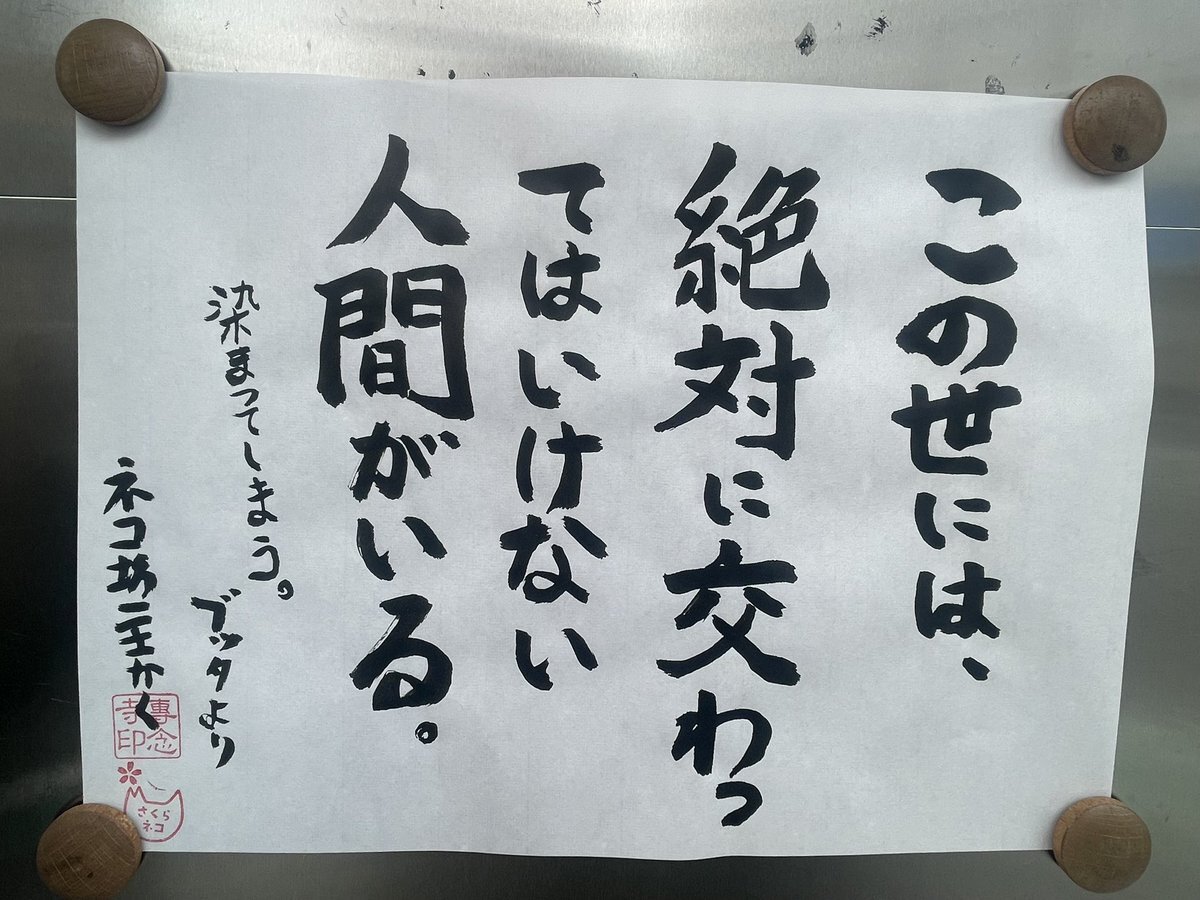 この世には、
絶対に交わっ
てはいけない
人間がいる。
染まってしまう。
ブッタより
ネコ坊主かく
專念
寺印
さくら
ネコ